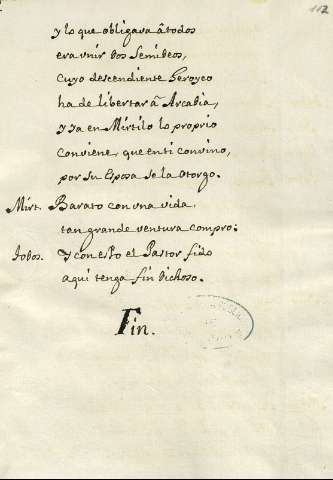 112
y lo que obligava â todos
era vnir dos Semideos,
cuyo descendiente Heroyco
ha de libertar â Arcadia,
y ya en Mirtilo lo proprio
conviene, que en ti convino,
por su Esposa se la otorgo.
Mirt. Barato con vna vida,
tan grande ventura compro.
Todos. Y con esto el Pastor fido
aqui tenga fin dichoso.
Fin.